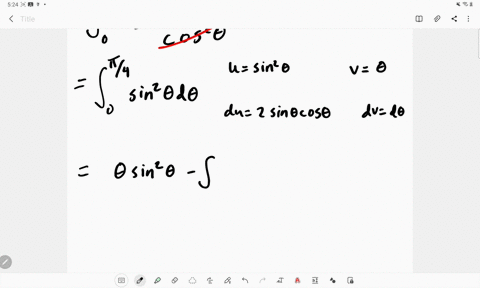 5:24
Title
∫₀ cos²θ
= ∫₀^π/4 sin²θdθ u = sin²θ v = θ
du = 2 sinθcosθ dv = dθ
= θ sin²θ - ∫